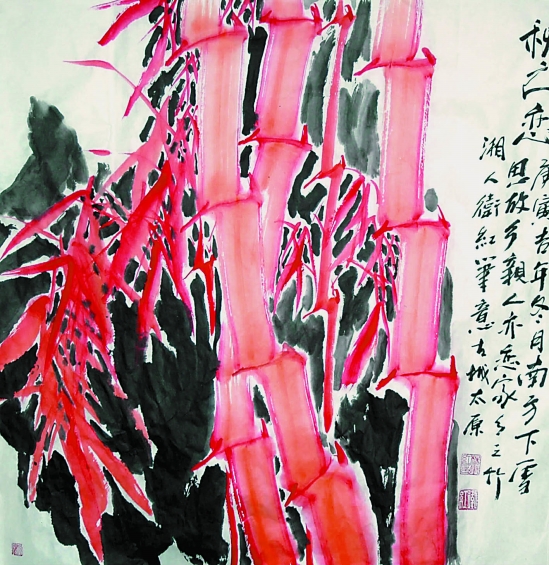 秋之恋
庚寅吉年冬月南方下雪
思故乡亲人亦恋家乡之竹
湘人卫红笔意古城太原